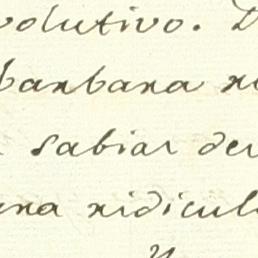 volutivo. D
barbara
sabias der
ridicul